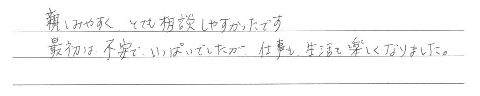 親しみやすく とても相談しやすかったです
最初は、不安で、いっぱいでしたが、仕事も、生活も楽しくなりました。